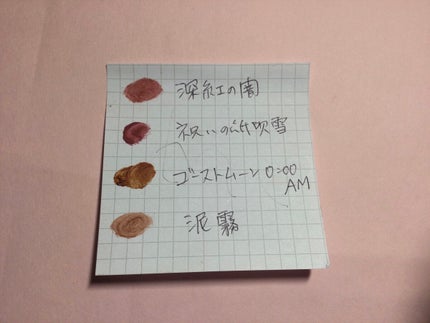 深紅の闇
祝いの紙吹雪
ゴーストムーン0:00
AM
泥霧